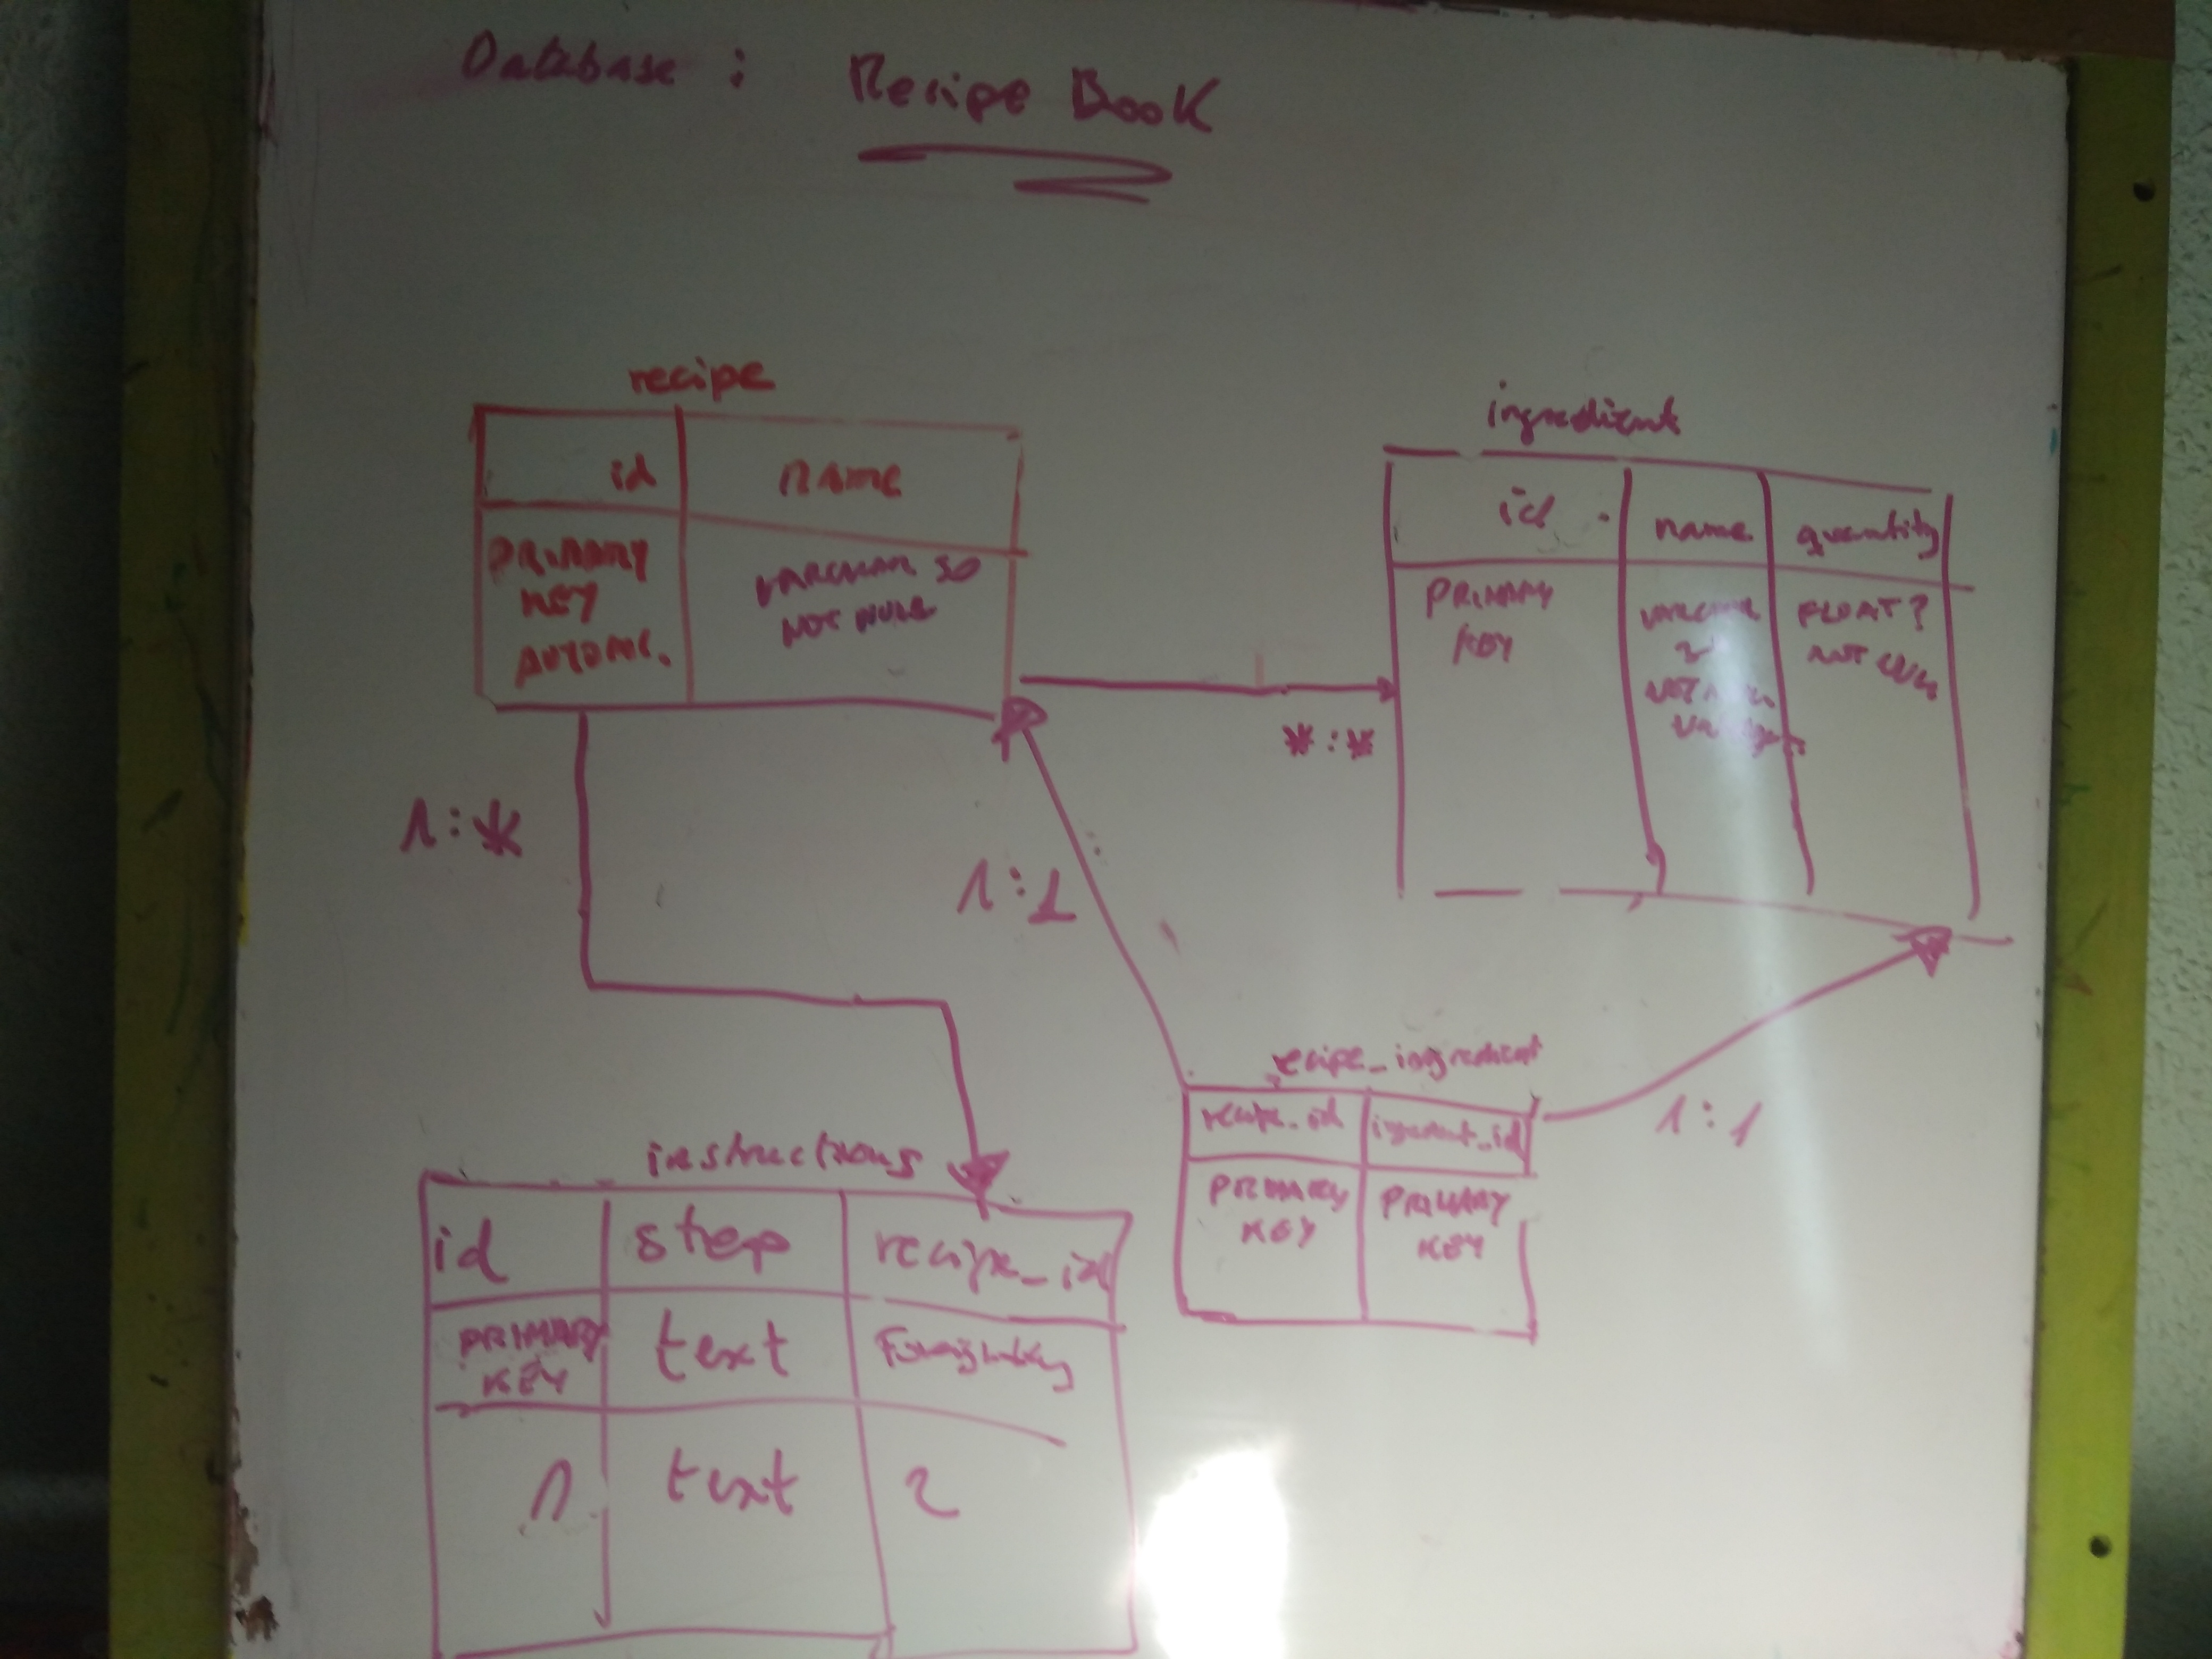 Database : Recipe Book
recipe
id name
PRIMARY
KEY
AUTOINC.
VARCHAR 50
NOT NULL
ingredient
id name quantity
PRIMARY
KEY
VARCHAR
NOT NULL
FLOAT?
NOT NULL
*:*
1:*
1:1
recipe_ingredient
recipe_id
PRIMARY
KEY
PRIMARY
KEY
1:1
instructions
id step recipe_id
PRIMARY
KEY
text
Foreign key
1 text 2